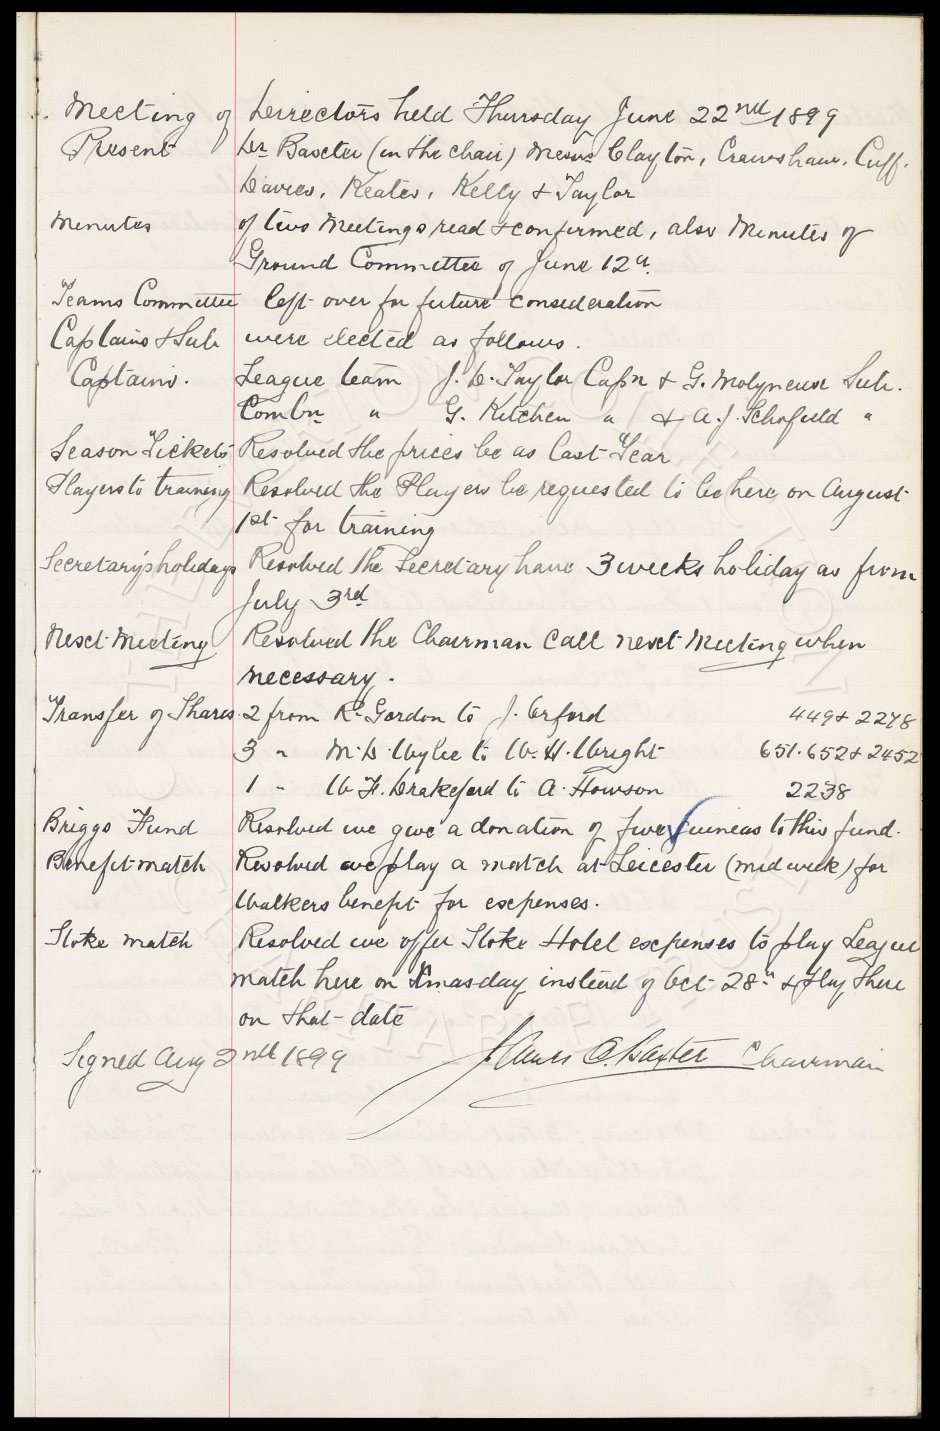 Meeting of Directors held Thursday June 22nd 1899
Present Dr. Baxter (in the chair) Messrs Clayton, Crawshaw, Cuff.
Davies, Keates, Kelly & Taylor
Minutes of two Meetings read & confirmed, also Minutes of
Ground Committee of June 12th.
Teams Committee left over for future consideration
Captains & Sub were elected as follows.
Captains. League team J. D. Taylor Capn & G. Molyneux Sub.
Combn " G. Kitchen " & A. J. Schofield "
Season Tickets Resolved the prices be as last Year
Players to training Resolved the Players be requested to be here on August
1st for training
Secretary's holidays Resolved the Secretary have 3 weeks holiday as from
July 3rd
Next Meeting Resolved the Chairman call next Meeting when
necessary.
Transfer of Shares. 2 from R. Gordon to J. Orford 449 & 2278
3 " M. D. Wylie to W. H. Wright 651. 652 & 2452
1 " W. F. Drakeford to A. Howson 2238
Briggs Fund Resolved we give a donation of five guineas to this fund.
Benefit match Resolved we play a match at Leicester (mid week) for
Walkers benefit for expenses.
Stoke match Resolved we offer Stoke Hotel expenses to play League
match here on Xmas day instead of Oct 28th & play there
on that date
Signed Aug 2nd 1899 James C. Baxter Chairman